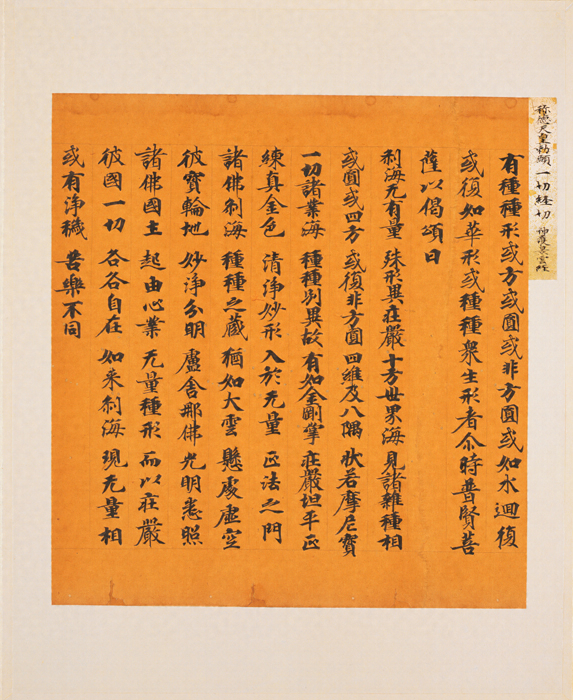 称徳天皇勅願一切経切 神護景雲経
有種種形或方或圓或非方圓或如水迴復
或復如華形或種種衆生形者尒時普賢菩
薩以偈頌曰
刹海无有量 殊形異荘嚴 十方世界海 見諸雜種相
或圓或四方 或復非方圓 四維及八隅 状若摩尼寳
一切諸業海 種種別異故 有如金剛掌 荘嚴坦平正
練真金色 清浄妙形 入於无量 正法之門
諸佛刹海 種種之蔵 猶如大雲 懸處虚空
彼寳輪地 妙浄分明 盧舎那佛 光明悉照
諸佛國土 起由心業 无量種形 而以荘嚴
彼國一切 各各自在 如来刹海 現无量相
或有浄穢 苦樂不同